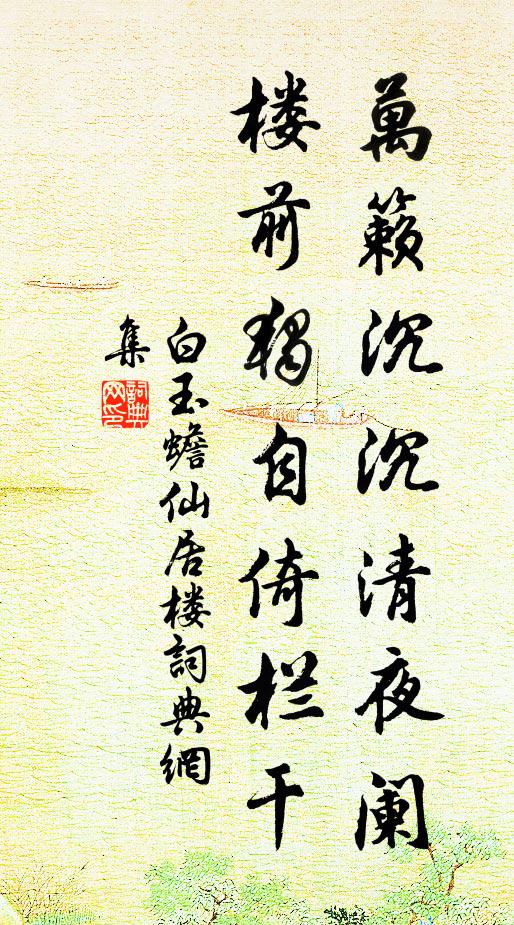 萬籟沉沉清夜阑
楼前独自倚栏干
白玉蟾仙居楼詞典網
集
詞典
网印